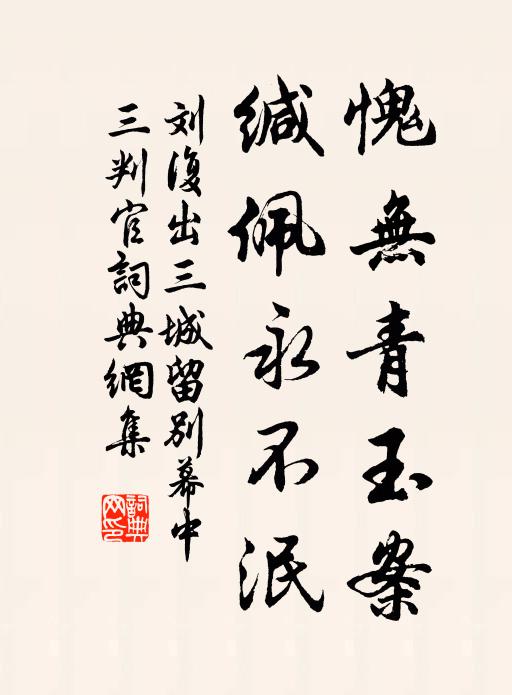 愧無青玉案
緘佩永不泯
刘復出三城留别幕中
三判官詞典網集
詞典網印